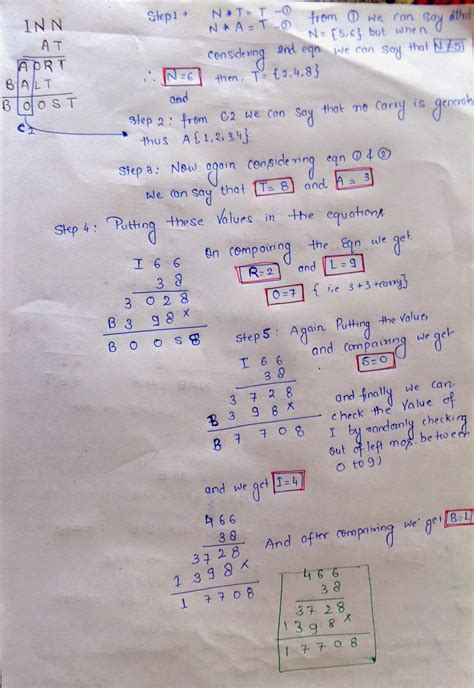 INN
AT
AORT
BALT
BOOST
C2
Step 1 → N * T = T - ①
N * A = T - ②
from ① we can say that
N = {5,6} but when
considering 2nd eqn we can say that N≠5
∴ N=6 then, T = {2,4,8}
and
Step 2: from C2 we can say that no carry is generate
thus A{1,2,3,4}
Step 3: Now again considering eqn ① & ②
we can say that T = 8 and A = 3
Step 4: Putting these values in the equations
On compairing the Eqn we get.
R=2 and L=9
O=7 { i.e 3+3+carry}
I 6 6
3 8
3 0 2 8
B 3 9 8 x
B O O S 8
Step 5: Again Putting the values
and compairing we get
S=0
I 6 6
3 8
3 7 2 8
B 3 9 8 x
B 7 7 0 8
and finally we can
check the value of
I by randomly checking
out of left nos between
0 to 9)
and we get I=4
4 6 6
3 8
3 7 2 8
1 3 9 8 x
1 7 7 0 8
And after compairing we get B=1
4 6 6
3 8
3 7 2 8
1 3 9 8 x
1 7 7 0 8